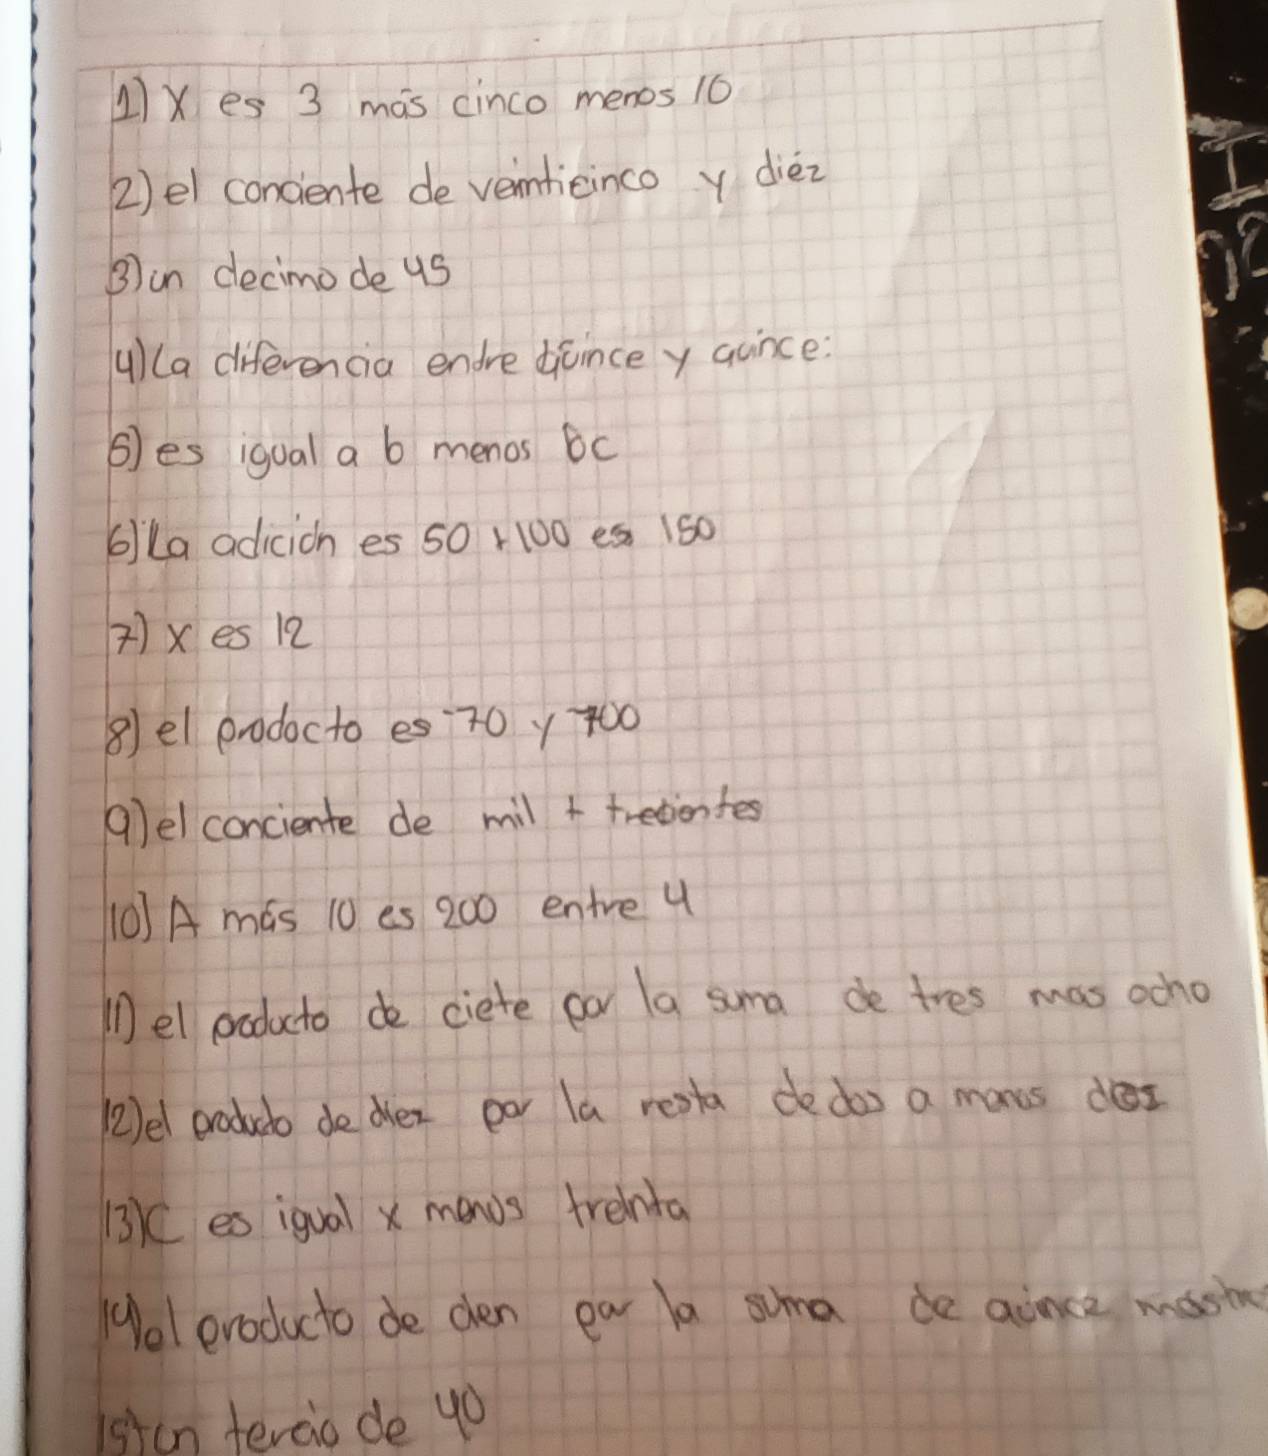 1) X es 3 más cinco menos 10
2) el conciente de veinticinco y diéz
3) un decimo de 45
4) La diferencia entre quince y quince:
5) es igual a b menos bc
6) La adición es 50 + 100 es 150
7) x es 12
8) el prodocto es -70 y 700
9) el conciente de mil + trecientes
10) A más 10 es 200 entre 4
11) el producto de ciete por la suma de tres mas ocho
12) el producto de diez por la resta de dos a menos
13) C es igual x menos treinta
14) el producto de cien por la suma de quince mas
15) un tercio de 40